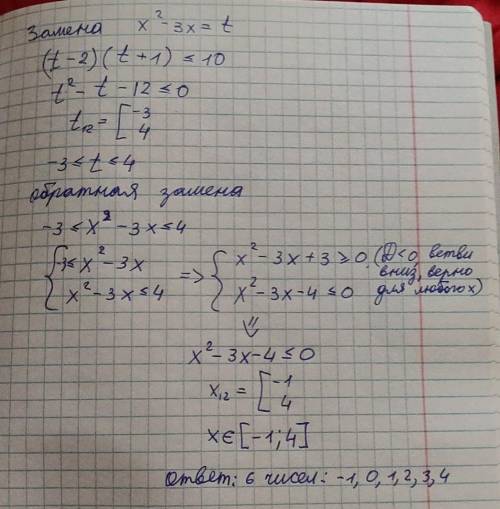 Замена x²-3x=t
(t-2)(t+1)≤10
t²-t-12≤0
t₁₂=[-3
4
-3≤t≤4
обратная замена
-3≤x²-3x≤4
{-3≤x²-3x => {x²-3x+3≥0 (D<0, ветви вниз, верно для любого x)
x²-3x≤4 x²-3x-4≤0
⇓
x²-3x-4≤0
x₁₂=[-1
4
x∈[-1;4]
ответ: 6 чисел: -1,0,1,2,3,4